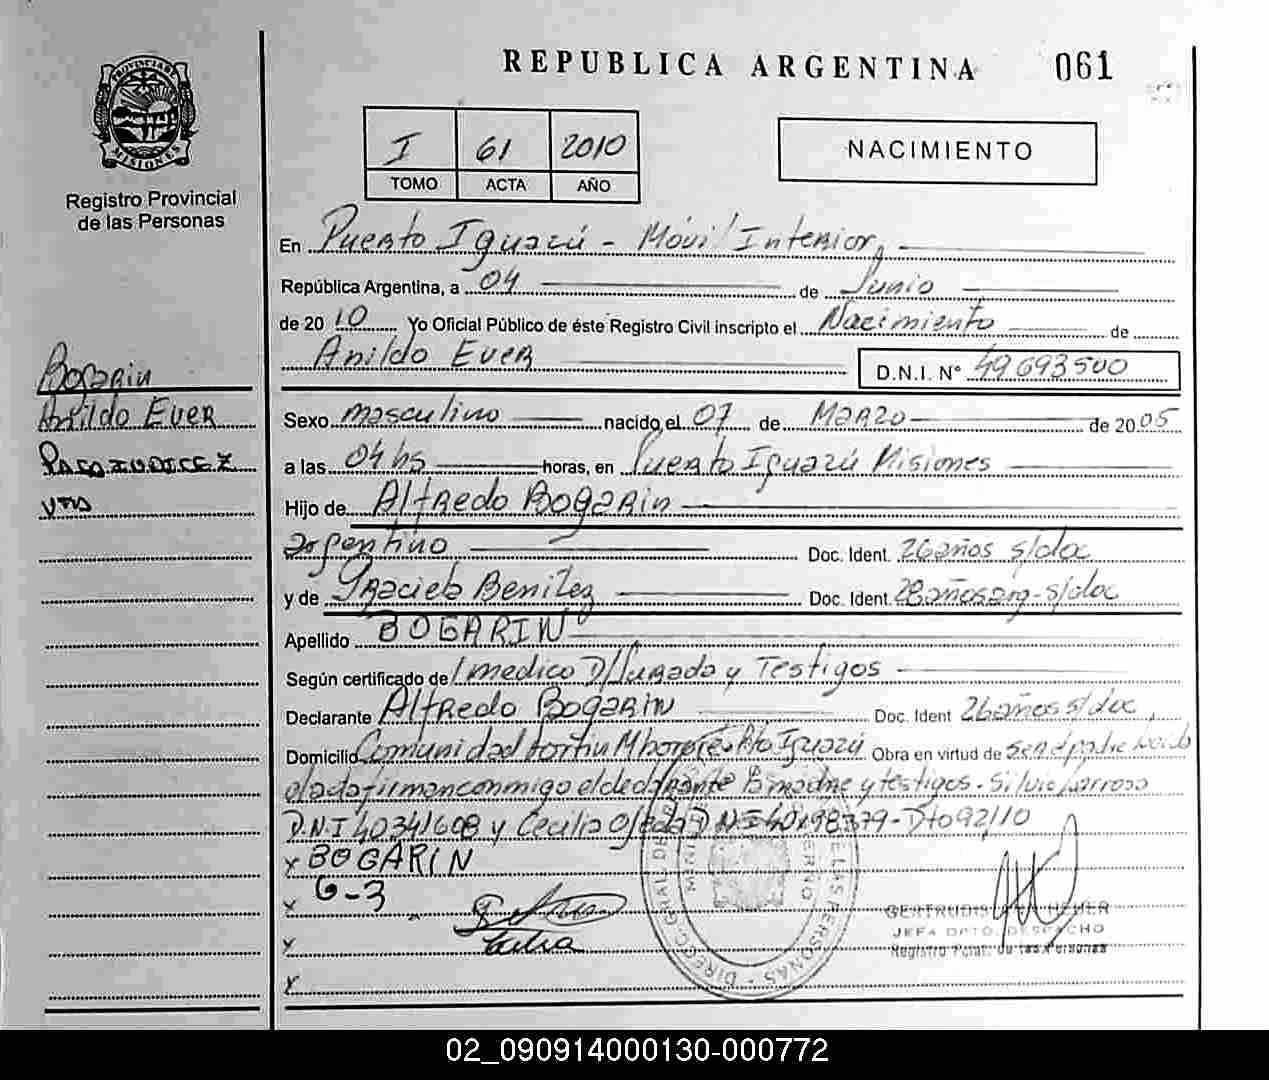 REPUBLICA ARGENTINA 061
PROVINCIA DE MISIONES
Registro Provincial
de las Personas
I 61 2010
TOMO ACTA AÑO
NACIMIENTO
En Puerto Iguazú - Móvil Interior,
República Argentina, a 04 de Junio
de 20 10 Yo Oficial Público de éste Registro Civil inscripto el Nacimiento de
Anildo Ever D.N.I. N° 49693500
Bogarin
Anildo Ever
Sexo masculino nacido el 07 de Marzo de 20 05
a las 04 hs horas, en Puerto Iguazú Misiones
Hijo de Alfredo Bogarin
argentino Doc. Ident. 26 años s/doc
y de Graciela Benitez Doc. Ident. 28 años arg - s/doc
Apellido BOGARIN
Según certificado de / medico D/Jurada y Testigos
Declarante Alfredo Bogarin Doc. Ident 26 años s/doc,
Domicilio Comunidad Fortin Mbororé - Pto Iguazú Obra en virtud de ser el padre Leida
el acta firman conmigo el declarante la madre y testigos - Silvio Barroso
D.N.I 40341608 y Cecilia Ojeda D.N.I 40198379 - Dto 92/10
x BOGARIN
x G-3
x
x
GERTRUDIS HEUER
JEFA DPTO. DESPACHO
Registro Pcial. de las Personas
02_090914000130-000772